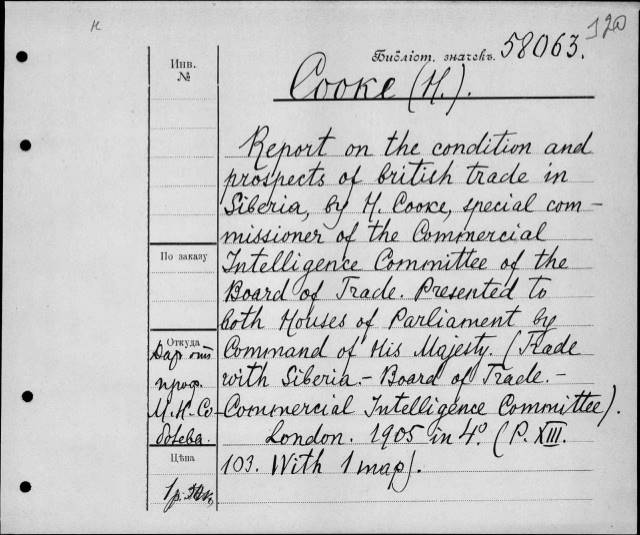 к
120
Инв.
№
Библіот. значекъ. 58063.
Cooke (H.).
Report on the condition and
prospects of british trade in
Siberia, by H. Cooke, special com-
missioner of the Commercial
По заказу
Intelligence Committee of the
Board of Trade. Presented to
both Houses of Parliament by
Откуда
Даръ отъ
проф.
М. Н. Со-
болева.
Command of His Majesty. (Trade
with Siberia. - Board of Trade. -
Commercial Intelligence Committee).
London. 1905 in 4º. (P. XIII.
Цѣна
1 р.
103. With 1 map).